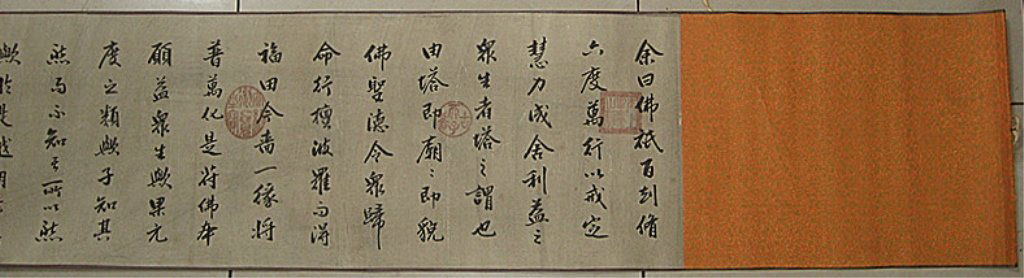 余曰佛祇百刧脩
六度萬行以戒定
慧力成舍利益之
衆生者塔之謂也
由塔即廟〻即貌
佛聖德令衆歸
命行檀波羅而得
福田今嗇一緣將
普萬化是将佛本
願益衆生歟果
度之類歟子知其
然而不知其所以然
歟於是